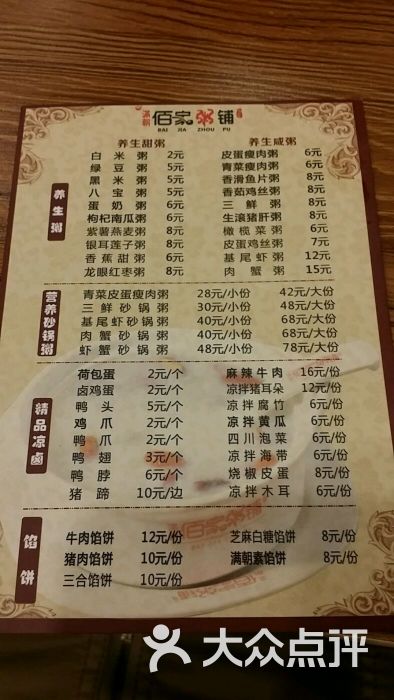 满朝 佰家粥铺
BAI JIA ZHOU PU
养生粥
养生甜粥 养生咸粥
白米粥 2元 皮蛋瘦肉粥 6元
绿豆粥 5元 青菜瘦肉粥 6元
黑米粥 5元 香滑鱼片粥 8元
八宝粥 5元 香菇鸡丝粥 8元
蛋奶粥 6元 三鲜粥 8元
枸杞南瓜粥 6元 生滚猪肝粥 8元
紫薯燕麦粥 8元 橄榄菜粥 6元
银耳莲子粥 8元 皮蛋鸡丝粥 7元
香蕉甜粥 6元 基尾虾粥 12元
龙眼红枣粥 8元 肉蟹粥 15元
营养砂锅粥
青菜皮蛋瘦肉粥 28元/小份 42元/大份
三鲜砂锅粥 30元/小份 48元/大份
基尾虾砂锅粥 40元/小份 68元/大份
肉蟹砂锅粥 40元/小份 68元/大份
虾蟹砂锅粥 48元/小份 78元/大份
精品凉卤
荷包蛋 2元/个 麻辣牛肉 16元/份
卤鸡蛋 2元/个 凉拌猪耳朵 12元/份
鸭头 5元/个 凉拌腐竹 6元/份
鸡爪 2元/个 凉拌黄瓜 6元/份
鸭爪 2元/个 四川泡菜 6元/份
鸭翅 3元/个 凉拌海带 6元/份
鸭脖 6元/个 烧椒皮蛋 8元/份
猪蹄 10元/边 凉拌木耳 6元/份
馅饼
牛肉馅饼 12元/份 芝麻白糖馅饼 8元/份
猪肉馅饼 10元/份 满朝素馅饼 8元/份
三合馅饼 10元/份
大众点评